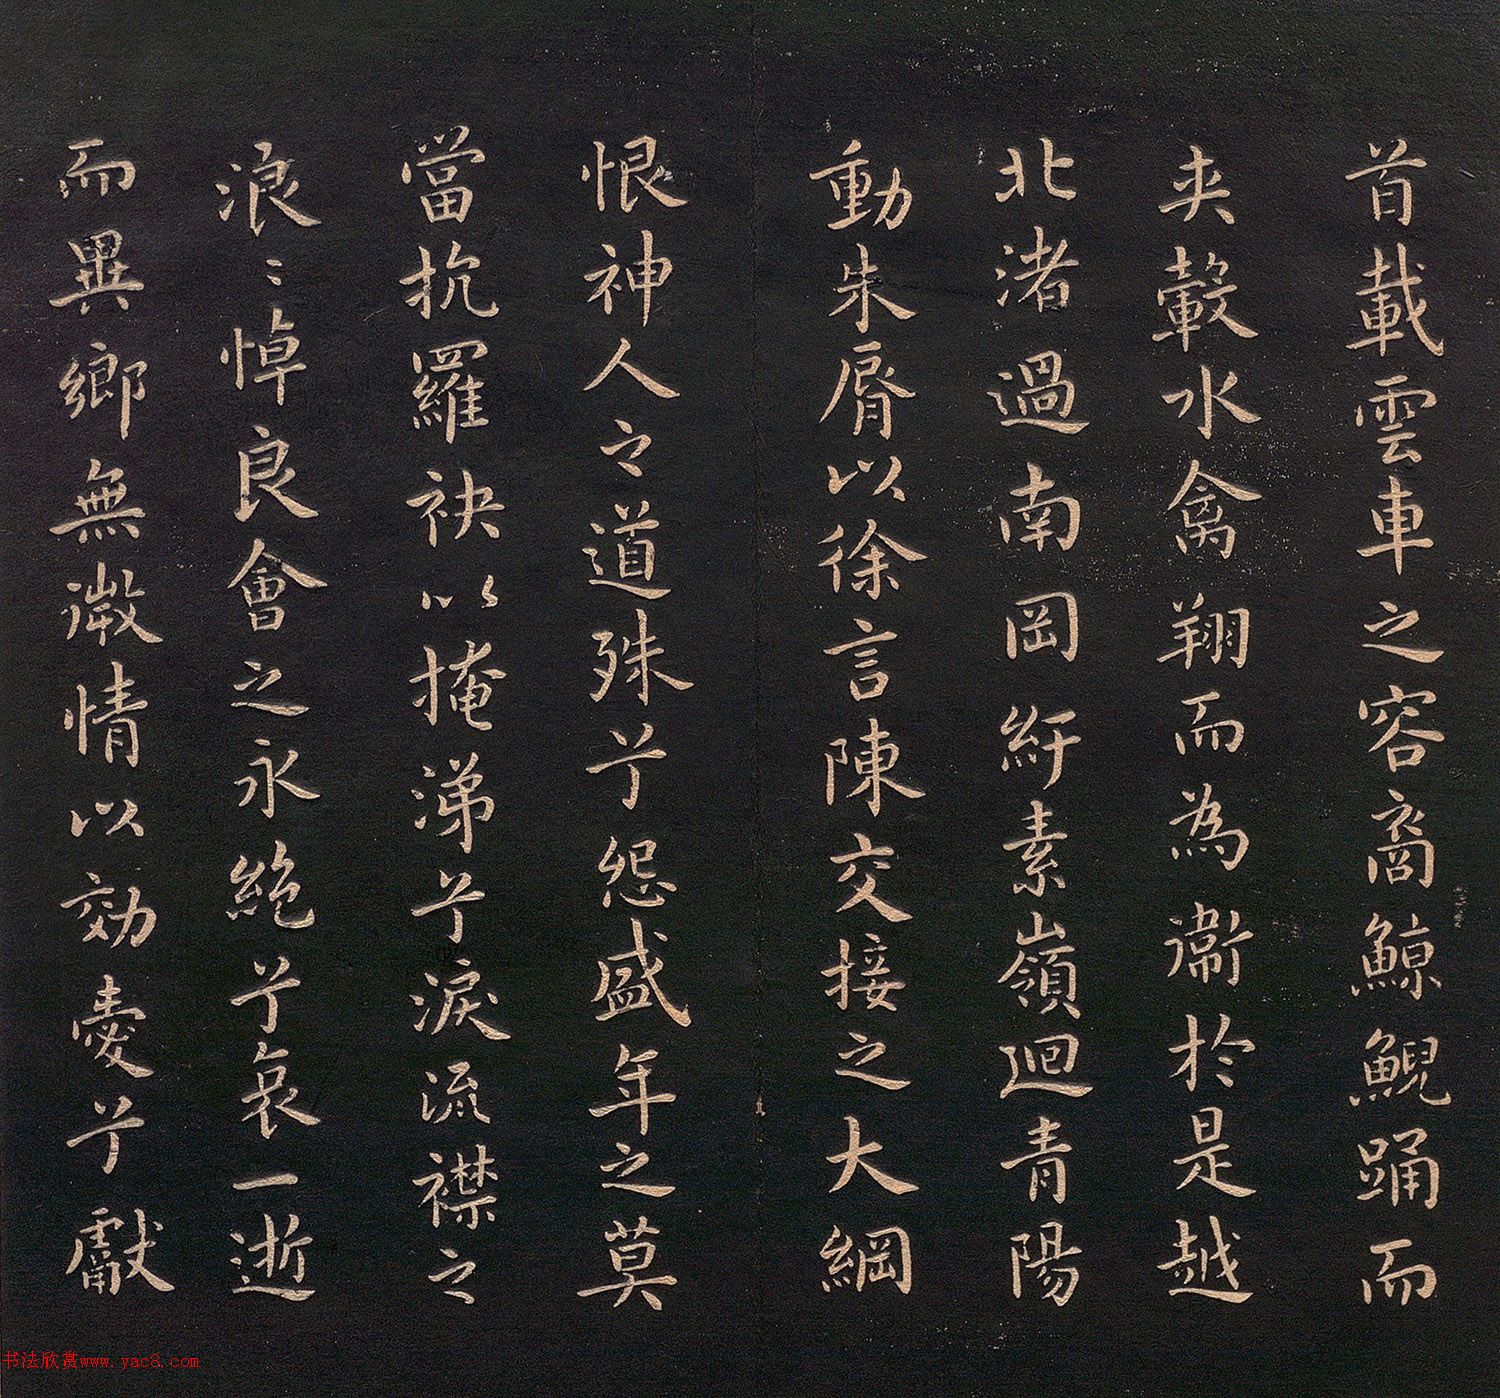 首載雲車之容裔鯨鯢踊而
夾轂水禽翔而為衞於是越
北渚過南岡紆素嶺迴青陽
動朱脣以徐言陳交接之大綱
恨神人之道殊兮怨盛年之莫
當抗羅袂以掩涕兮淚流襟之
浪〻悼良會之永絕兮哀一逝
而異鄉無微情以効愛兮獻
书法欣赏www.yac8.com